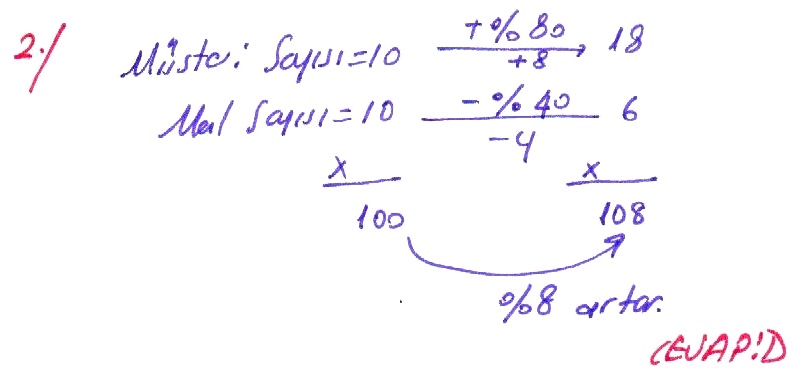 2./
Müşteri Sayısı=10 +%80 +8 18
Mal Sayısı=10 -%40 -4 6
x x
100 108
%8 artar.
CEVAP:D